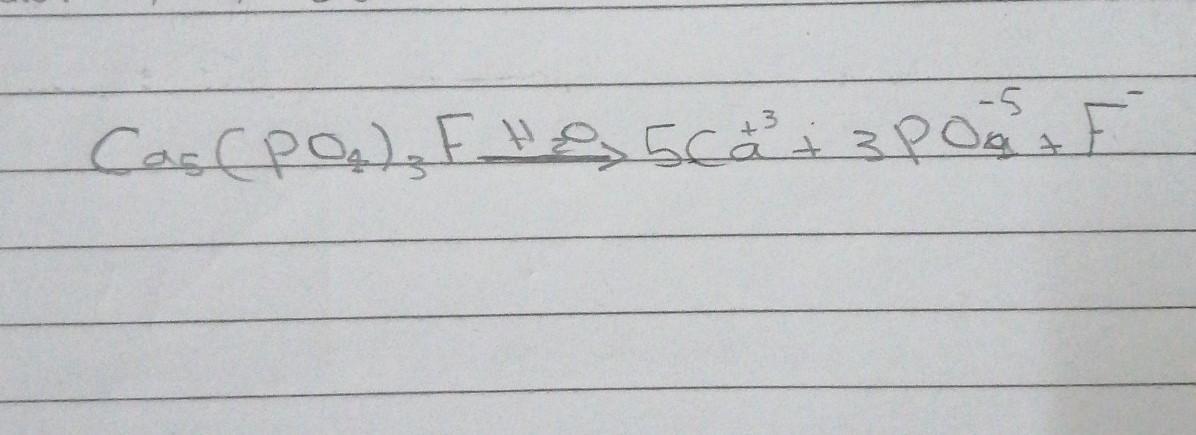 Ca₅(PO₄)₃F —H₂O→ 5Ca⁺³ + 3PO₄⁻⁵ + F⁻